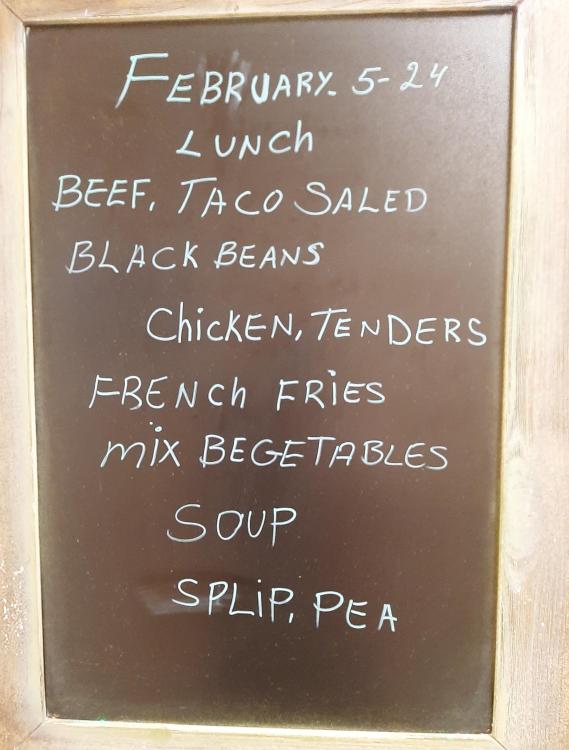 FEBRUARY. 5-24
LUNCh
BEEF, TACO SALED
BLACK BEANS
ChicKEN, TENDERS
FRENCh FRiES
miX BEGETABLES
SOUP
SPLiP, PEA